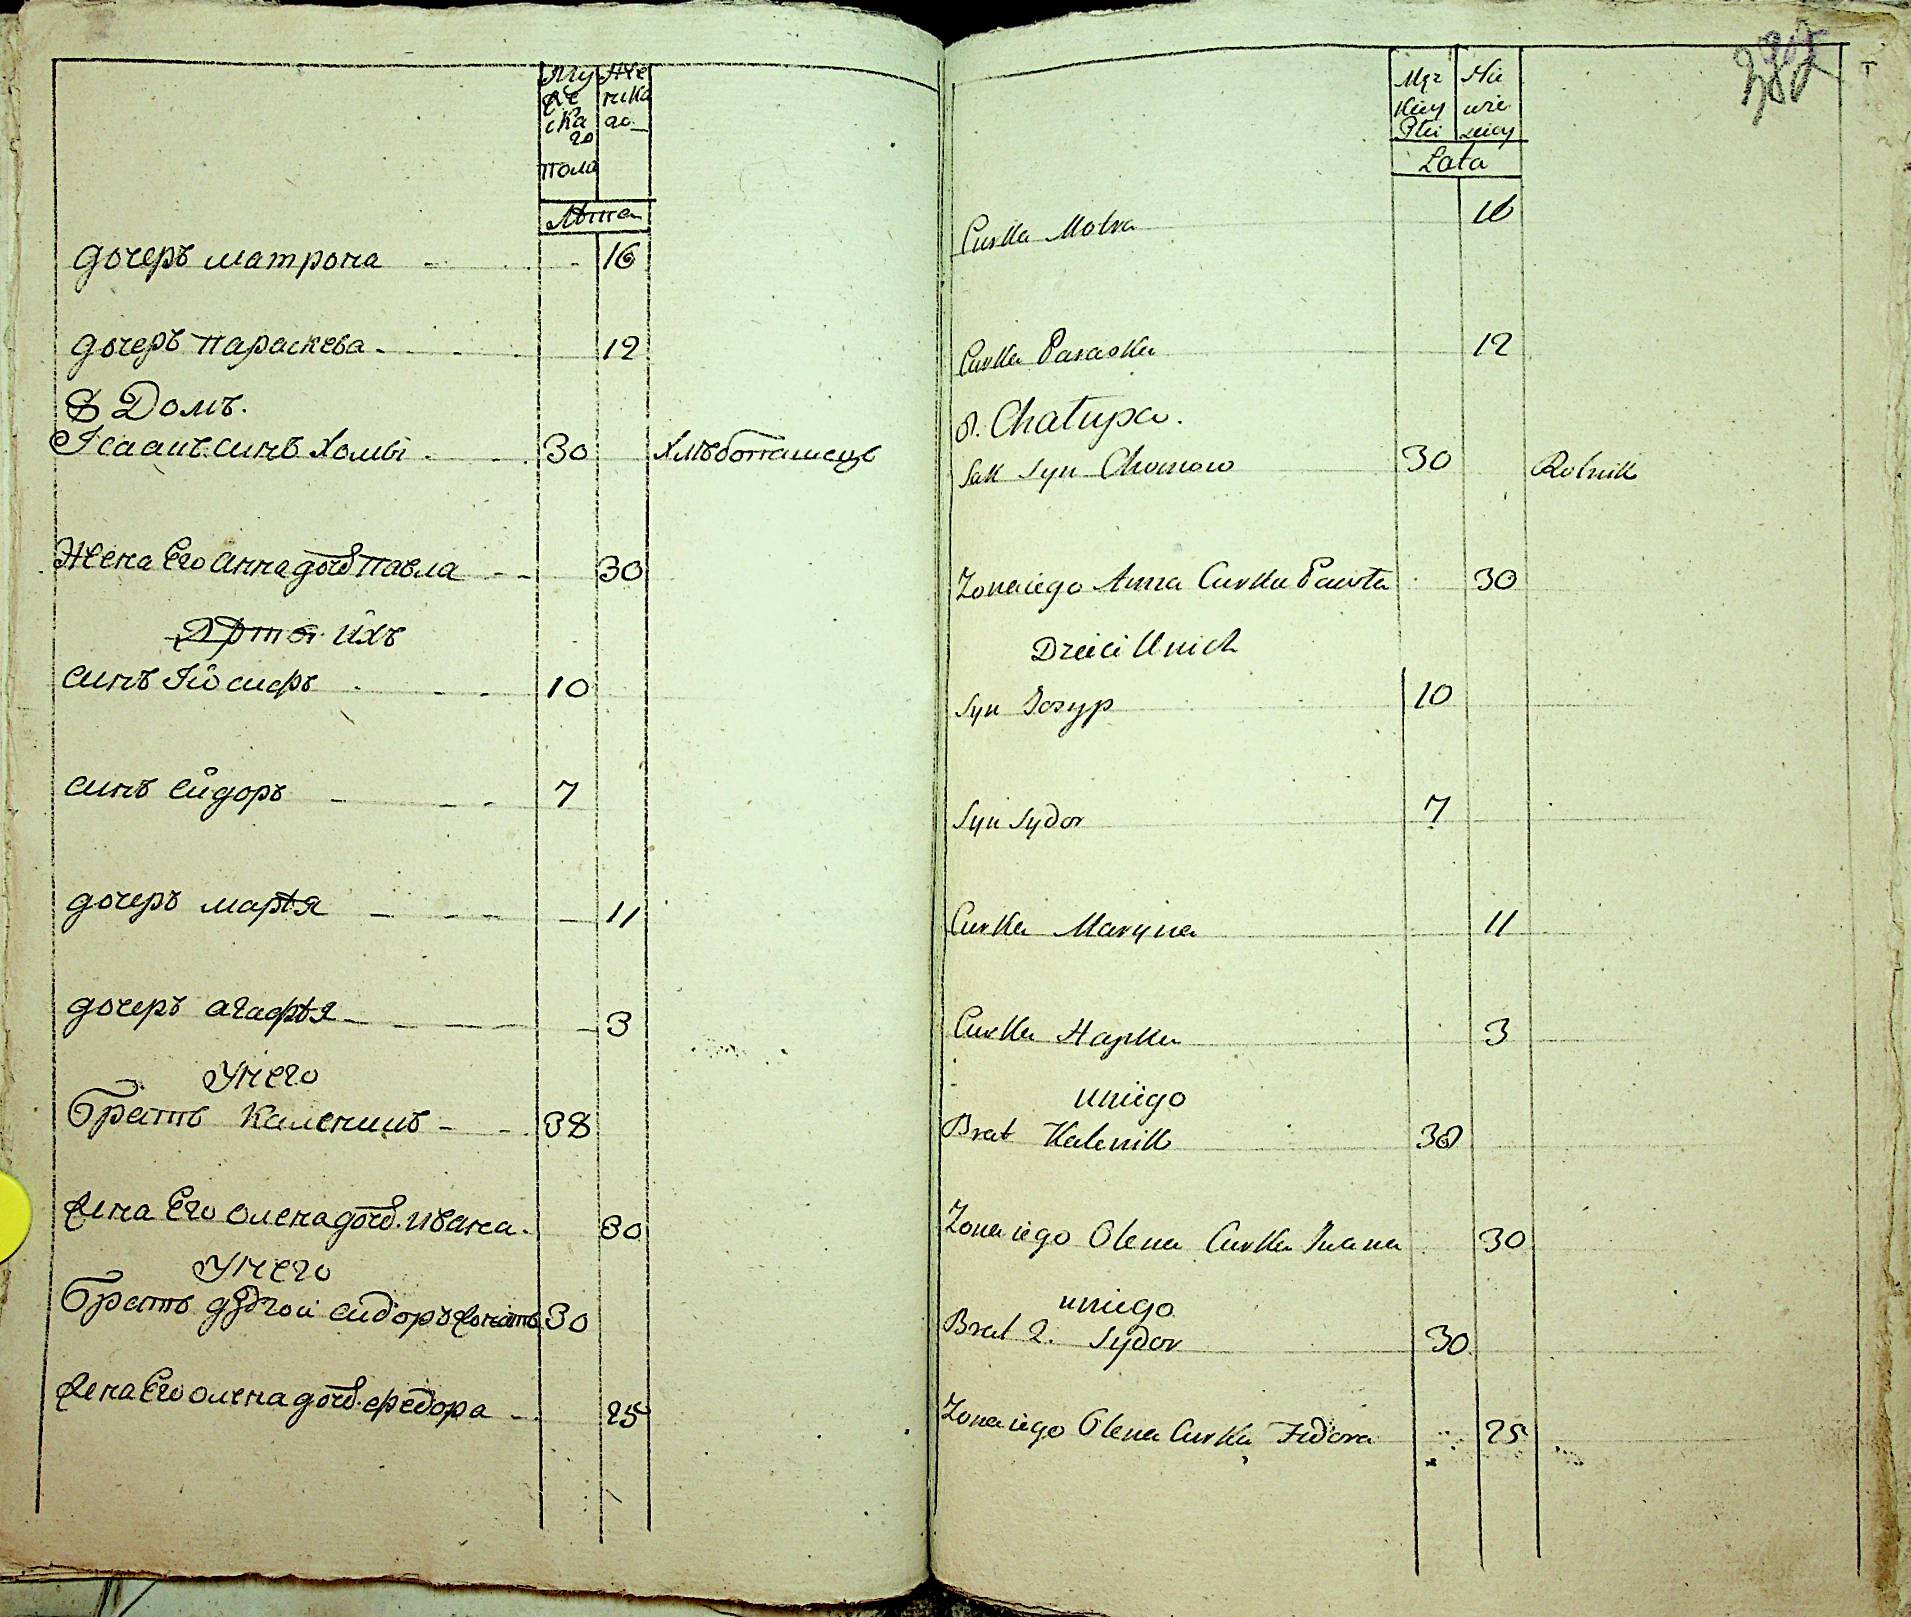 Му Же
же ника
ска го
го
пола
Лѣта
дочеръ матрона 16
дочеръ параскева 12
8 Домъ.
Ісаакъ синъ Хомы 30 Хлѣбопашецъ
Жена Его Анна дочъ Павла 30
Дѣти ихъ
синъ Іосифъ 10
синъ Сидоръ 7
дочеръ марія 11
дочеръ агафія 3
У него
братъ Каленикъ 38
жена Его Олена дочъ Ивана 30
У него
братъ другой сидоръ женатъ 30
жена Его олена дочъ федора 25
Męz Nie
kiey wie
Płci sciey
Lata
Curka Motra 16
Curka Paraska 12
8. Chałupa.
Sak Syn Chomow 30 Rolnik
Zona iego Anna Curka Pawła 30
Dzieci U nich
Syn Josyp 10
Syn Sydor 7
Curka Maryna 11
Curka Hapka 3
u niego
Brat Kalenik 38
Zona iego Olena Curka Iwana 30
u niego
Brat 2. Sydor 30
Zona iego Olena Curka Fedora 25